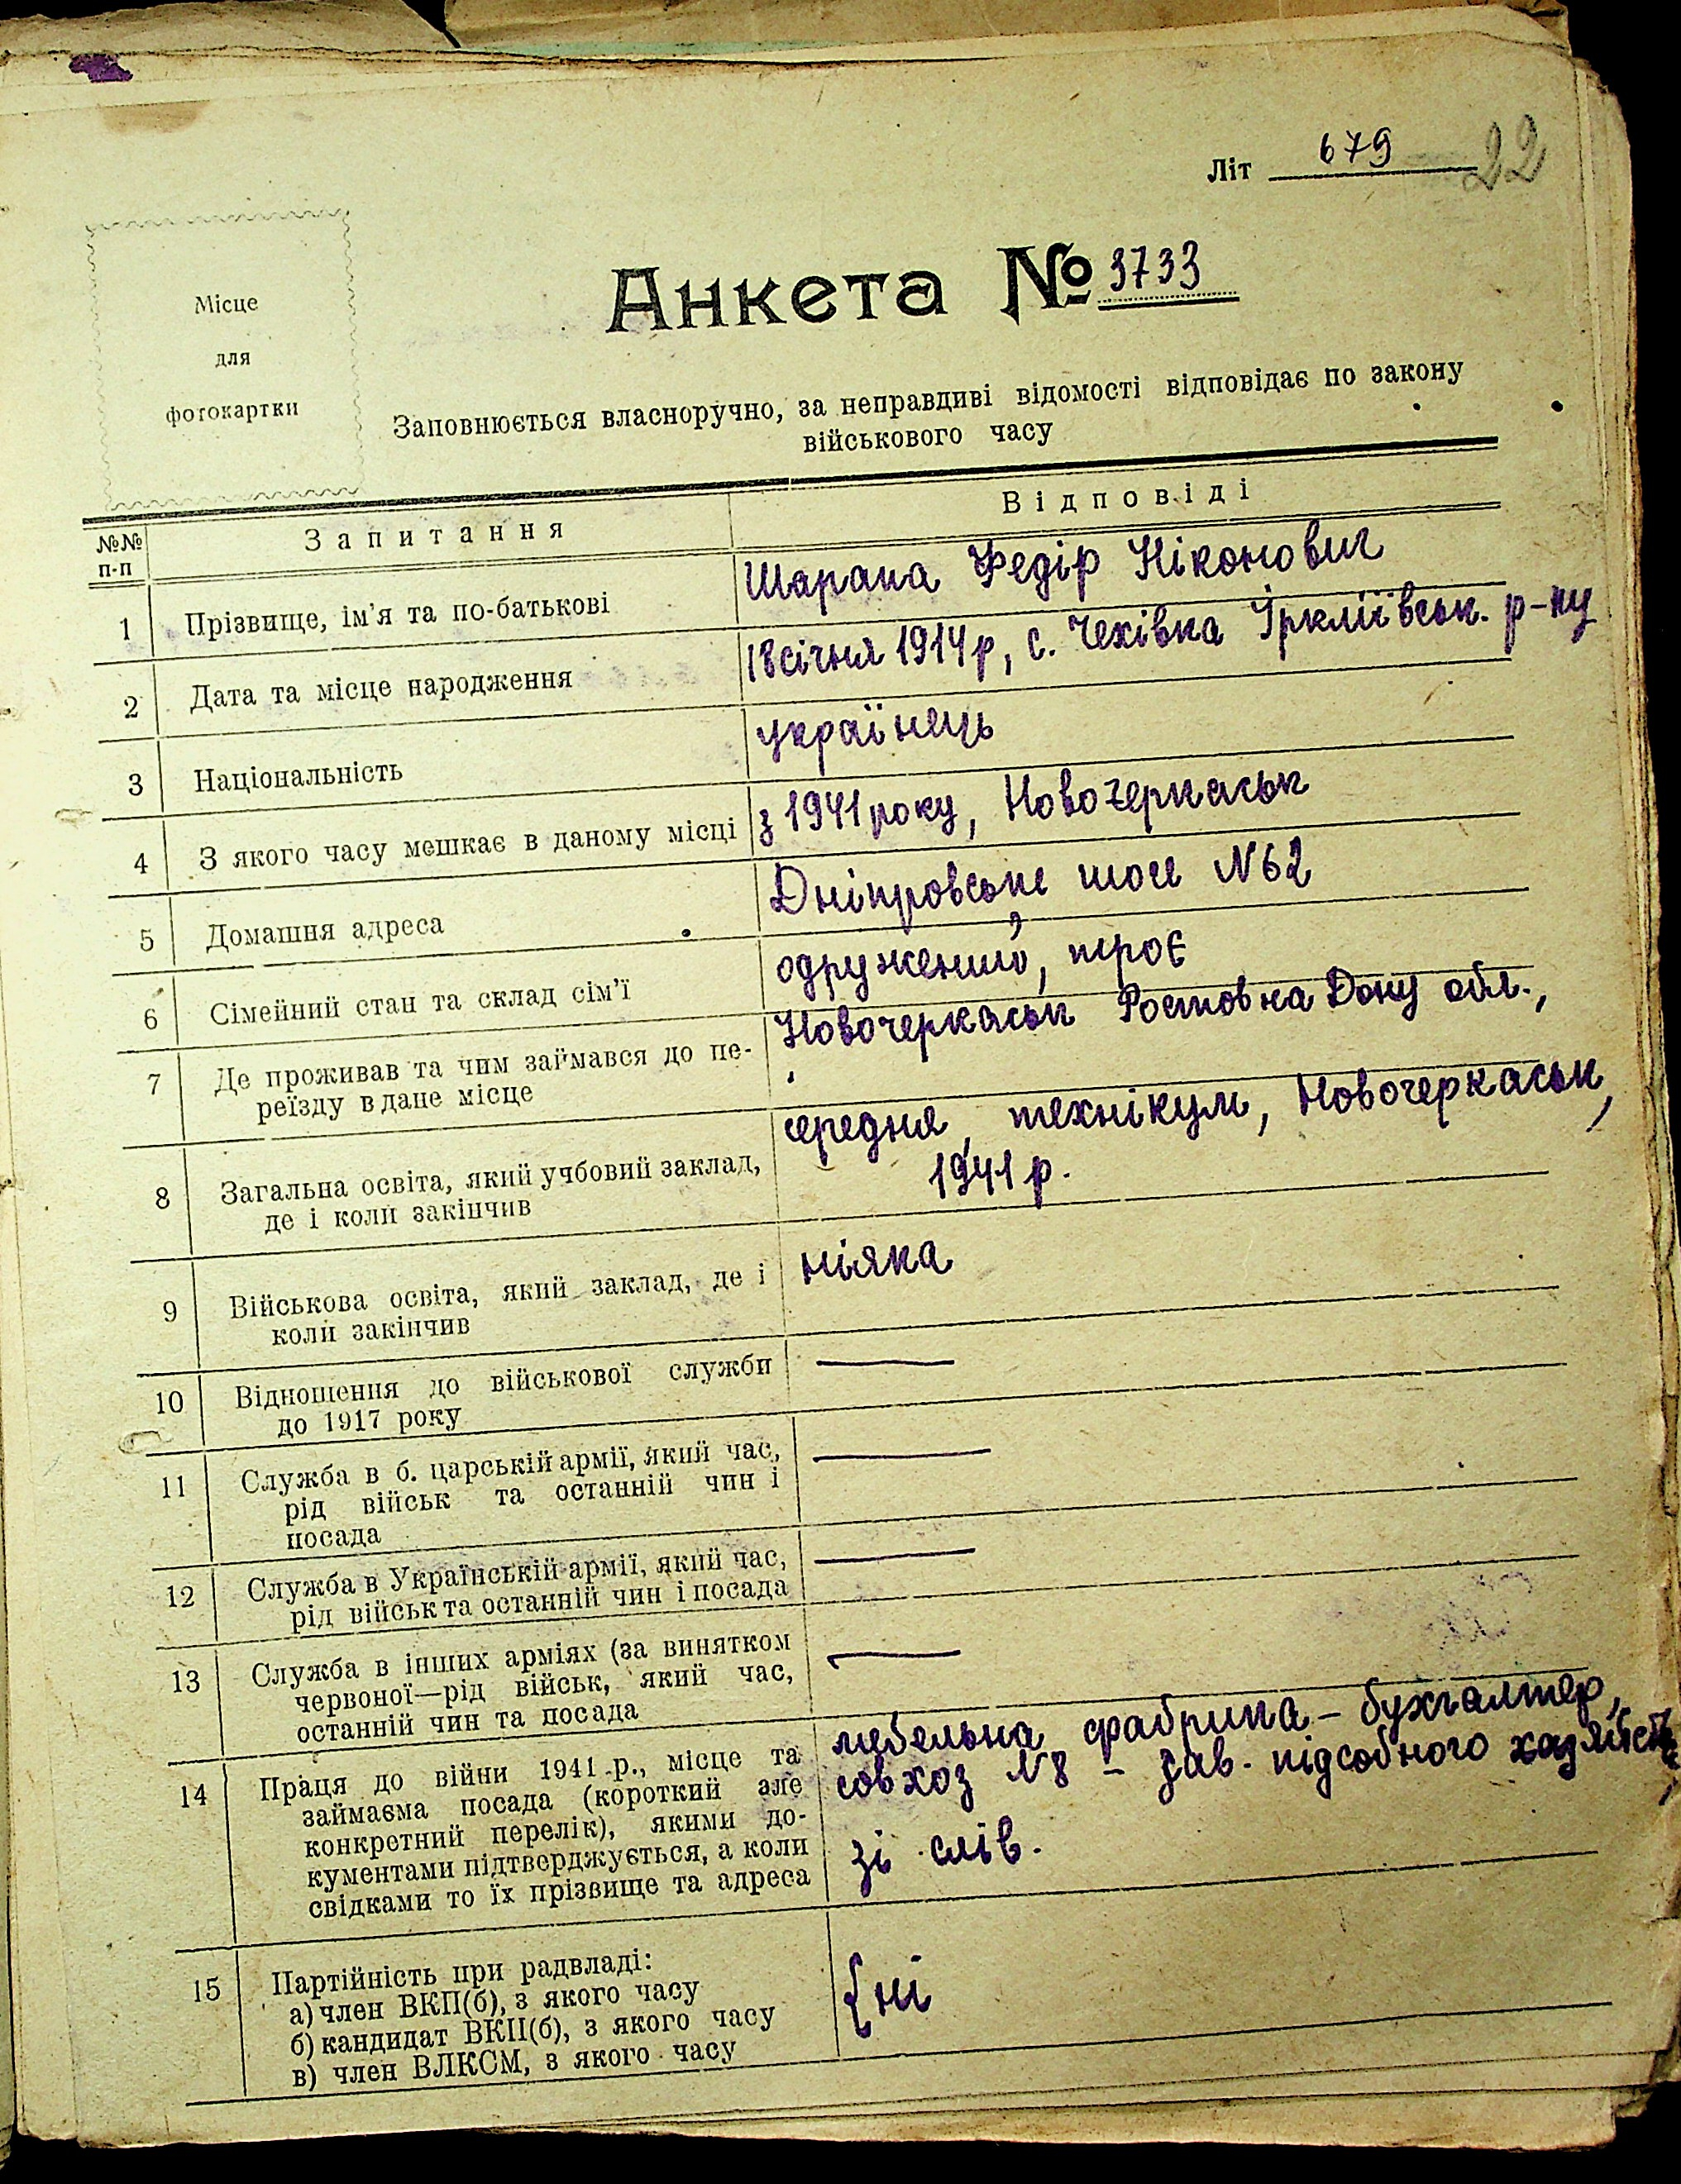 Літ 679 22
Місце
для
фотокартки
Анкета № 3733
Заповнюється власноручно, за неправдиві відомості відповідає по закону
військового часу
№№
п-п
Запитання
Відповіді
1 Прізвище, ім'я та по-батькові
Шарапа Федір Ніконович
2 Дата та місце народження
18 січня 1914 р, с. Чехівка Іркліївськ. р-ну
3 Національність
українець
4 З якого часу мешкає в даному місці
з 1941 року, Новочеркаськ
5 Домашня адреса
Дніпровське шосе N 62
6 Сімейний стан та склад сім'ї
одружений, троє
7 Де проживав та чим займався до пе-
реїзду в дане місце
Новочеркаськ Ростов на Дону обл.,
8 Загальна освіта, який учбовий заклад,
де і коли закінчив
середня, технікум, Новочеркаськ,
1941 р.
9 Військова освіта, який заклад, де і
коли закінчив
ніяка
10 Відношення до військової служби
до 1917 року
—
11 Служба в б. царській армії, який час,
рід військ та останній чин і
посада
—
12 Служба в Українській армії, який час,
рід військ та останній чин і посада
—
13 Служба в інших арміях (за винятком
червоної—рід військ, який час,
останній чин та посада
—
14 Праця до війни 1941 р., місце та
займаєма посада (короткий але
конкретний перелік), якими до-
кументами підтверджується, а коли
свідками то їх прізвище та адреса
мебельна фабрика – бухгалтер,
совхоз N 8 – зав. підсобного
зі слів.
15 Партійність при радвладі:
а) член ВКП(б), з якого часу
б) кандидат ВКП(б), з якого часу
в) член ВЛКСМ, з якого часу
{ ні